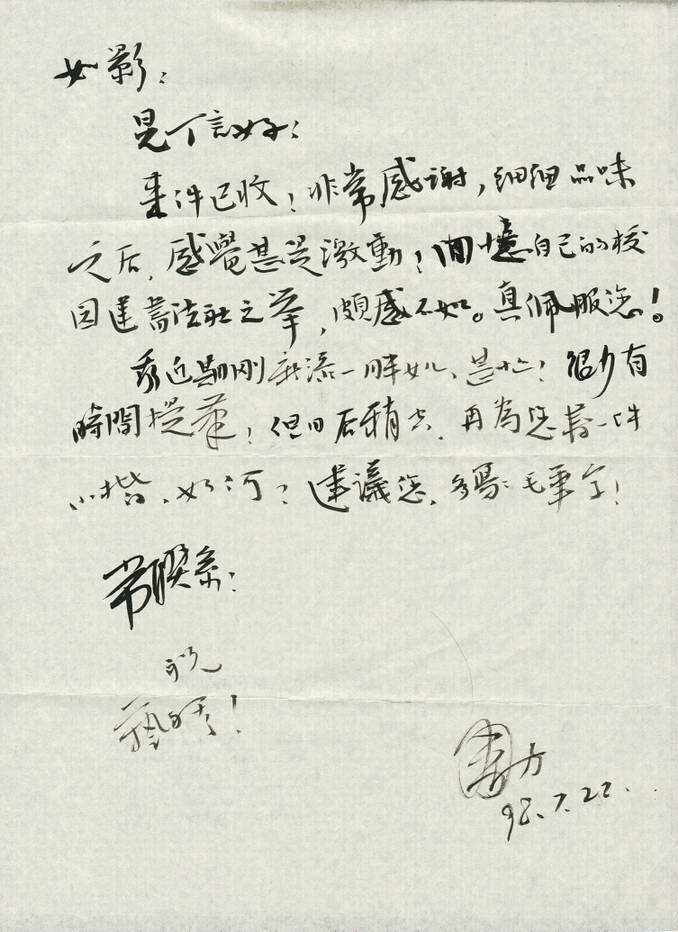 如影：
見丁言好：
来件已收！非常感谢，细细品味
之后，感覺甚是激動！回憶自己的校
园建書法社之举，頗感不如。真佩服您！
我近期刚新添一胖女儿，甚忙！很少有
時間提筆！但日后稍空，再為您書一件
小楷，如何？建議您，多寫毛筆字！
常联系！
祝
藝
方
98.7.22.